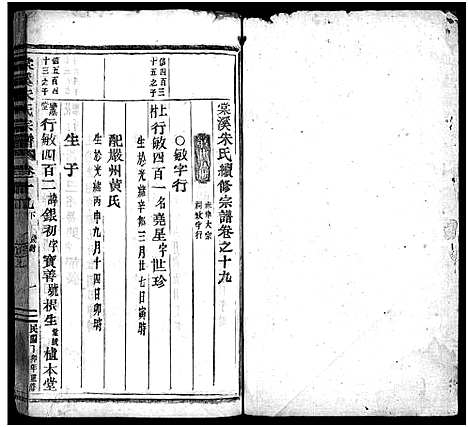 棠溪朱氏續修宗譜卷之十九
〇敏字行
信四百三十五之子
上竹 行敏四百一名堯星字世珍
生於光緒辛卯三月廿七日寅時
配嚴州黄氏
生於光緒丙申九月十四日卯時
生子
行敏四百二諱銀初字寶善號根生
植本堂
棠溪朱氏宗譜
卷十九
下
一